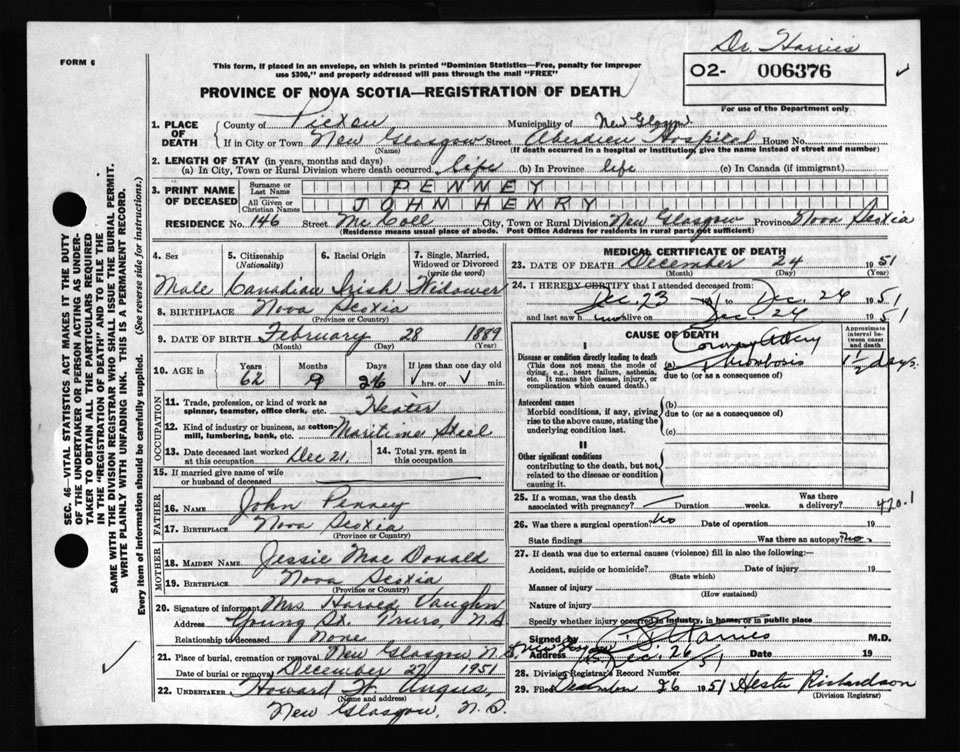 Dr. Harries
FORM 6
This form, if placed in an envelope, on which is printed "Dominion Statistics—Free, penalty for improper
use $300," and properly addressed will pass through the mail "FREE"
02- 006376
For use of the Department only
PROVINCE OF NOVA SCOTIA—REGISTRATION OF DEATH
1. PLACE OF DEATH
County of Pictou Municipality of New Glasgow
If in City or Town New Glasgow Street Aberdeen Hospital House No.
(Name) (If death occurred in a hospital or institution, give the name instead of street and number)
2. LENGTH OF STAY (in years, months and days)
(a) In City, Town or Rural Division where death occurred life (b) In Province life (c) In Canada (if immigrant)
3. PRINT NAME OF DECEASED
Surname or Last Name PENNEY
All Given or Christian Names JOHN HENRY
RESIDENCE No. 146 Street McColl City, Town or Rural Division New Glasgow Province Nova Scotia
(Residence means usual place of abode. Post Office Address for residents in rural parts not sufficient)
4. Sex 5. Citizenship (Nationality) 6. Racial Origin 7. Single, Married, Widowed or Divorced (write the word)
Male Canadian Irish Widower
8. BIRTHPLACE Nova Scotia
(Province or Country)
9. DATE OF BIRTH February 28 1889
(Month) (Day) (Year)
10. AGE in Years Months Days If less than one day old
62 9 26 hrs. or min.
OCCUPATION
11. Trade, profession, or kind of work as spinner, teamster, office clerk, etc. Heater
12. Kind of industry or business, as cotton-mill, lumbering, bank, etc. Maritime Steel
13. Date deceased last worked at this occupation Dec 21, 14. Total yrs. spent in this occupation
15. If married give name of wife or husband of deceased
FATHER
16. NAME John Penney
17. BIRTHPLACE Nova Scotia
(Province or Country)
MOTHER
18. MAIDEN NAME Jessie MacDonald
19. BIRTHPLACE Nova Scotia
(Province or Country)
20. Signature of informant Mrs Harold Vaughn
Address Young St. Truro, N.S
Relationship to deceased None
21. Place of burial, cremation or removal New Glasgow, N.S
Date of burial or removal December 27 1951
22. UNDERTAKER Howard W. Angus,
(Name and address)
New Glasgow, N.S.
MEDICAL CERTIFICATE OF DEATH
23. DATE OF DEATH December 24 1951
(Month) (Day) (Year)
24. I HEREBY CERTIFY that I attended deceased from:
Dec. 23 19 to Dec. 24 1951
and last saw h im alive on Dec. 24 1951
CAUSE OF DEATH
Approximate interval between onset and death
I
Disease or condition directly leading to death
(This does not mean the mode of dying, e.g., heart failure, asthenia, etc. It means the disease, injury, or complication which caused death.)
(a) Coronary Artery thrombosis 1½ days.
due to (or as a consequence of)
Antecedent causes
Morbid conditions, if any, giving rise to the above cause, stating the underlying condition last.
(b)
due to (or as a consequence of)
(c)
II
Other significant conditions
contributing to the death, but not related to the disease or condition causing it.
25. If a woman, was the death associated with pregnancy? Duration weeks. Was there a delivery?
420.1
26. Was there a surgical operation? No Date of operation 19
State findings Was there an autopsy? No.
27. If death was due to external causes (violence) fill in also the following:
Accident, suicide or homicide? Date of injury 19
(State which)
Manner of injury
(How sustained)
Nature of injury
Specify whether injury occurred in industry, in home, or in public place
Signed by Harries M.D.
Address New Glasgow Date 19
Dec. 26/51
28. Division Registrar's Record Number
29. Filed December 26 1951 Hester Richardson
(Division Registrar)
SEC. 46—VITAL STATISTICS ACT MAKES IT THE DUTY
OF THE UNDERTAKER OR PERSON ACTING AS UNDER-
TAKER TO OBTAIN ALL THE PARTICULARS REQUIRED
IN THE "REGISTRATION OF DEATH" AND TO FILE THE
SAME WITH THE DIVISION REGISTRAR WHO SHALL ISSUE THE BURIAL PERMIT.
WRITE PLAINLY WITH UNFADING INK. THIS IS A PERMANENT RECORD.
Every item of information should be carefully supplied. (See reverse side for instructions.)